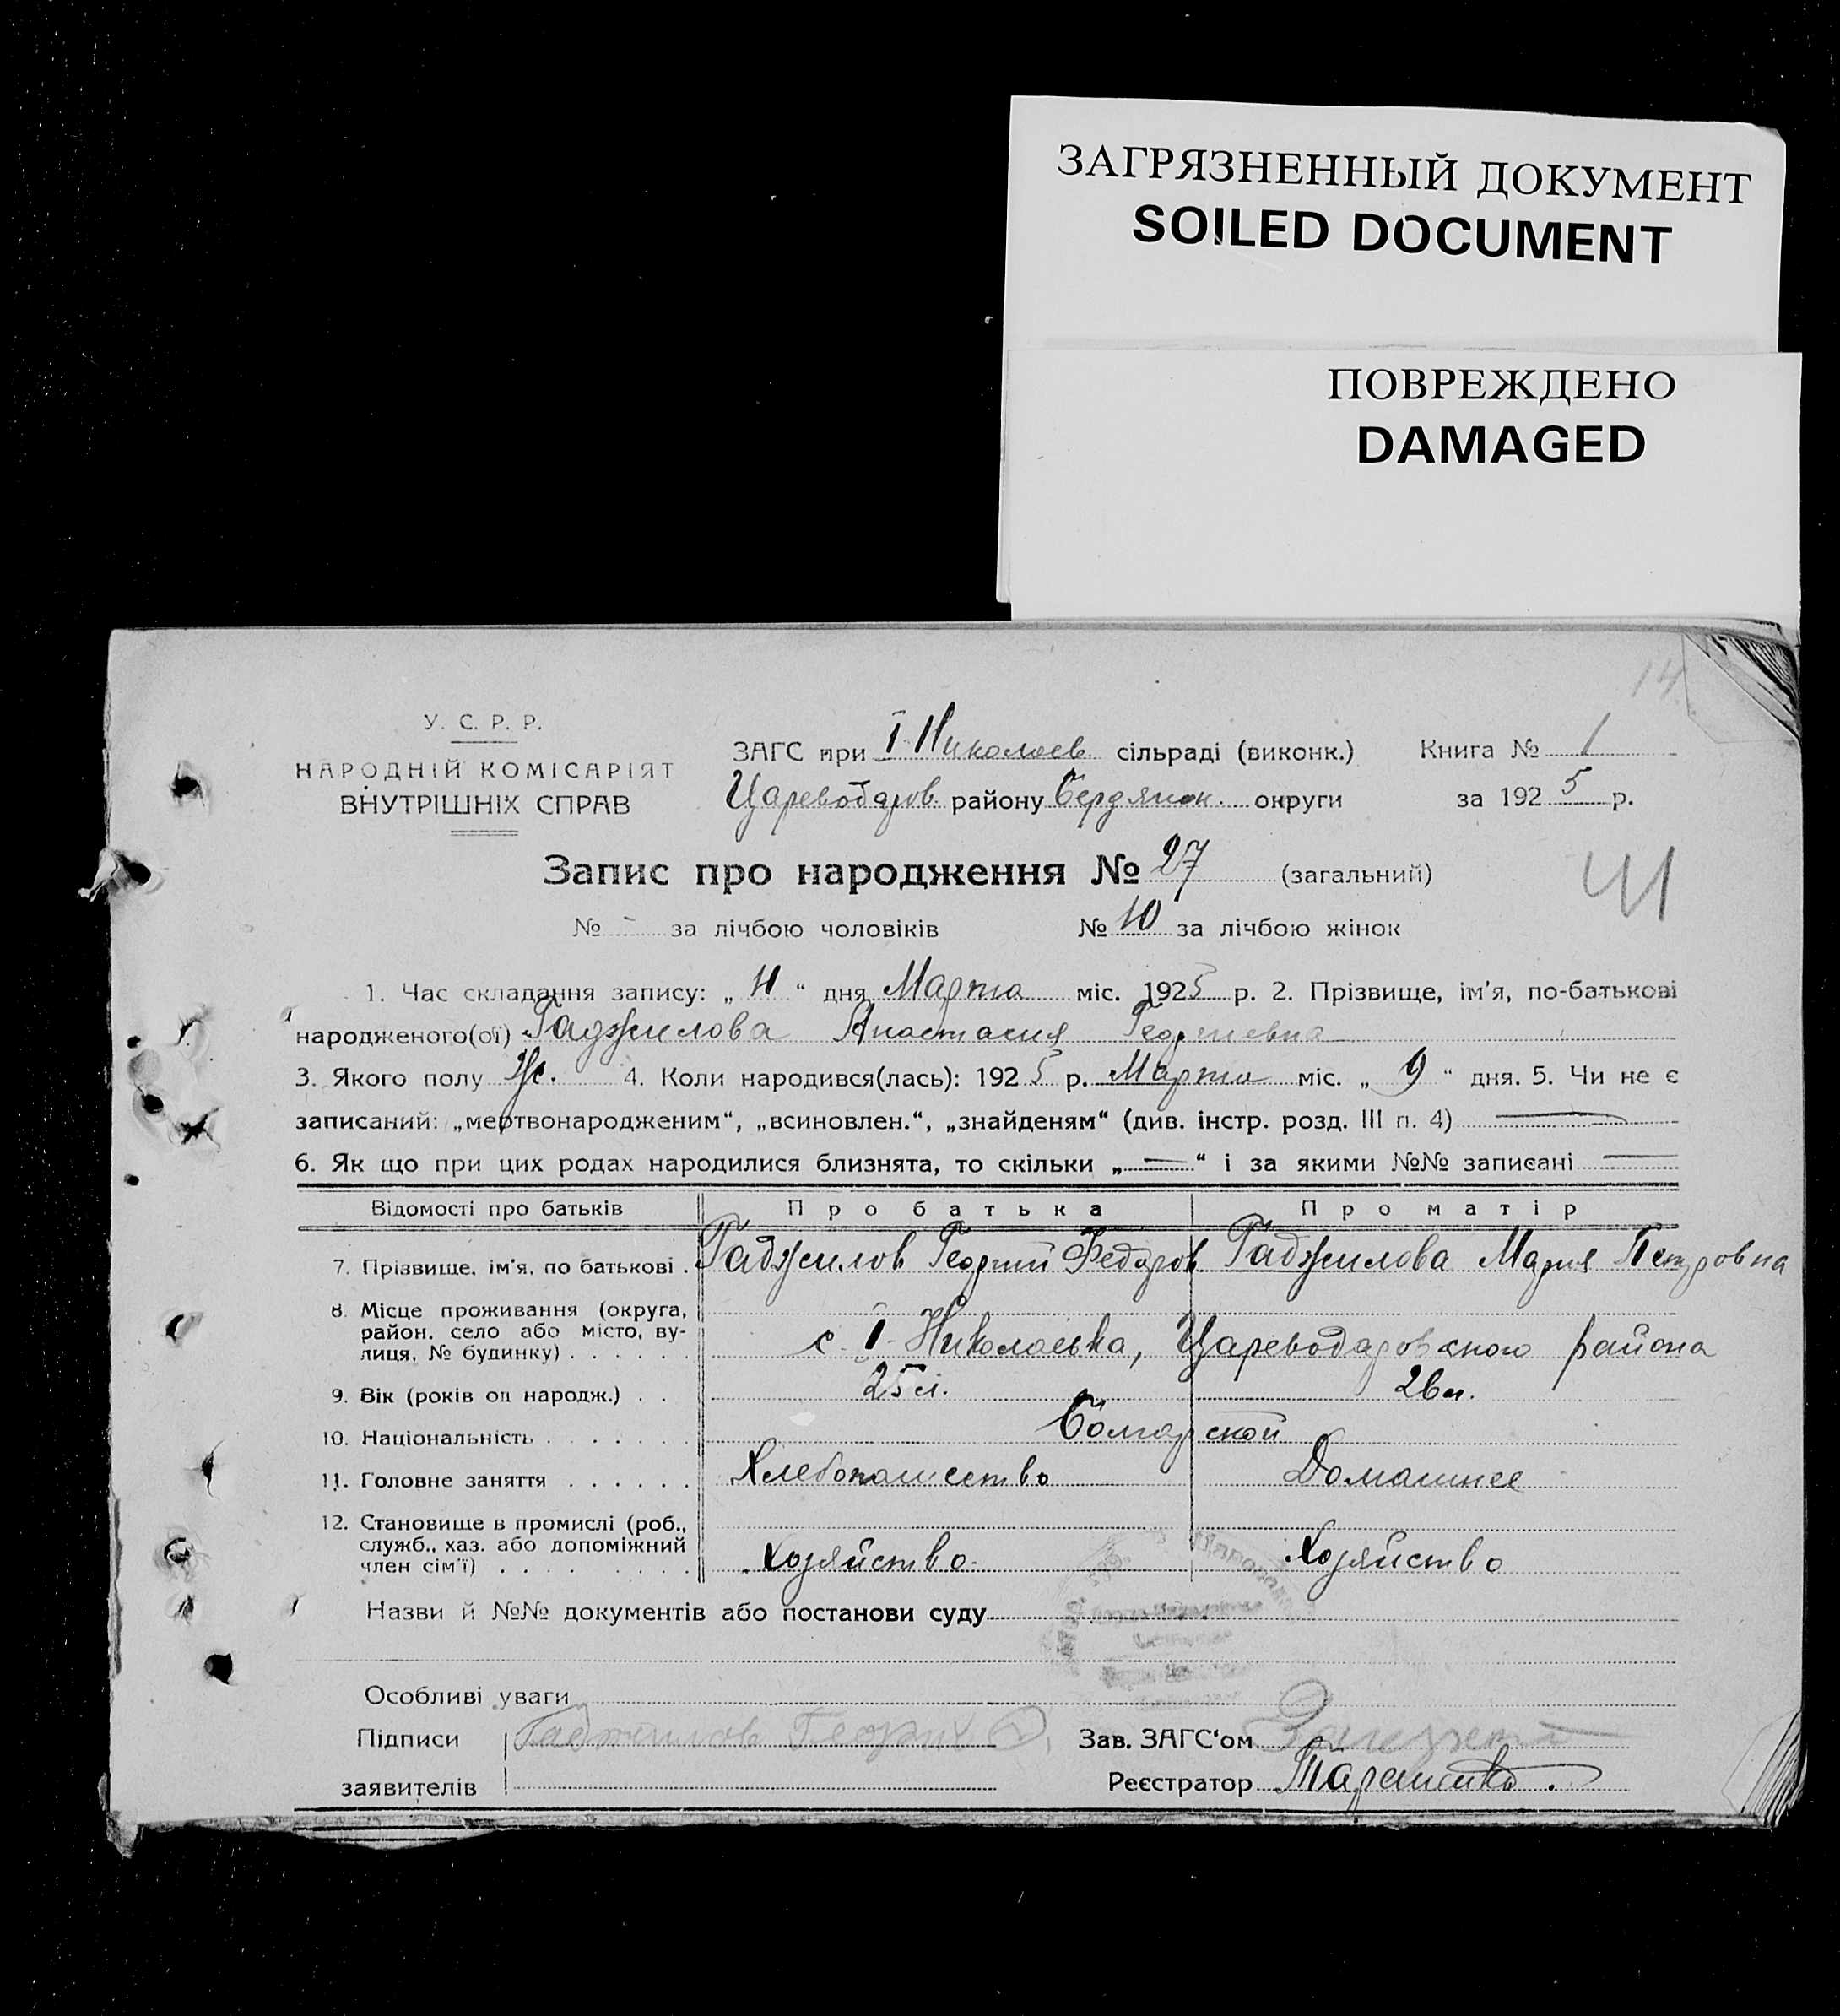 ЗАГРЯЗНЕННЫЙ ДОКУМЕНТ
SOILED DOCUMENT
ПОВРЕЖДЕНО
DAMAGED
14
У. С. Р. Р.
НАРОДНІЙ КОМІСАРІЯТ
ВНУТРІШНІХ СПРАВ
ЗАГС при І Николаев. сільраді (виконк.) Книга № 1
Цареводаров. району Бердянск. округи за 1925 р.
Запис про народження № 27 (загальний)
№ - за лічбою чоловіків № 10 за лічбою жінок
1. Час складання запису: „ 11 “ дня Марта міс. 1925 р. 2. Прізвище, ім'я, по-батькові
народженого(ої) Гаджилова Анастасия Георгиевна
3. Якого полу Ж. 4. Коли народився(лась): 1925 р. Марта міс. „ 9 “ дня. 5. Чи не є
записаний: „мертвонародженим“, „всиновлен.“, „знайденям“ (див. інстр. розд. III п. 4) —
6. Як що при цих родах народилися близнята, то скільки „ — “ і за якими №№ записані —
Відомості про батьків Про батька Про матір
7. Прізвище, ім'я, по батькові . Гаджилов Георгий Федоров. Гаджилова Мария Петровна
8. Місце проживання (округа,
район, село або місто, ву-
лиця, № будинку) . . . . . . с. І Николаевка, Цареводаровского района
9. Вік (років од народж.) . . 25 л. 26 л.
10. Національність . . . . . . . Болгарской
11. Головне заняття . . . . . . Хлебопашество Домашнее
12. Становище в промислі (роб.,
служб., хаз. або допоміжний
член сім'ї) . . . . . . . . . Хозяйство Хозяйство
Назви й №№ документів або постанови суду
Особливі уваги
Підписи Гаджилов Георгий Зав. ЗАГС'ом
заявителів Реєстратор Тараненко.